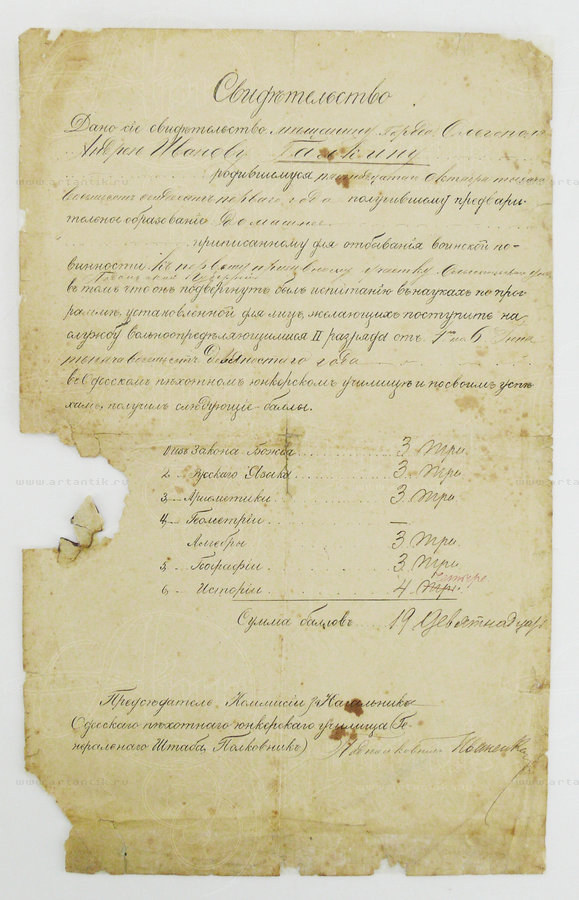 Свидѣтельство
Дано сіе свидѣтельство мѣщанину города
Андрею Иванову Галкину
родившемуся октября тысяча
восемьсотъ перваго года получившему предвари-
тельное образованіе домашнее
приписанному для отбыванія воинской по-
винности къ первому призывному участку
губерніи
въ томъ что онъ подвергнутъ былъ испытанію въ наукахъ по про-
граммѣ, установленной для лицъ, желающихъ поступить на
службу вольноопредѣляющимися II разряда отъ 1 по 6
тысяча восемьсотъ девяностого года
въ Одесскомъ пѣхотномъ юнкерскомъ училищѣ и по своимъ успѣ-
хамъ, получилъ слѣдующіе баллы.
1 изъ Закона Божія 3 три
2. Русскаго Языка 3 три.
3. Ариѳметики 3 три
4. Геометріи —
Алгебры 3 три
5. Географіи 3 три.
6 Исторіи 4 три. четыре
Сумма балловъ 19 девятнадцать
Предсѣдатель Коммисіи (Начальникъ
Одесскаго пѣхотнаго юнкерскаго училища Ге-
неральнаго Штаба Полковникъ)
www.artantik.ru